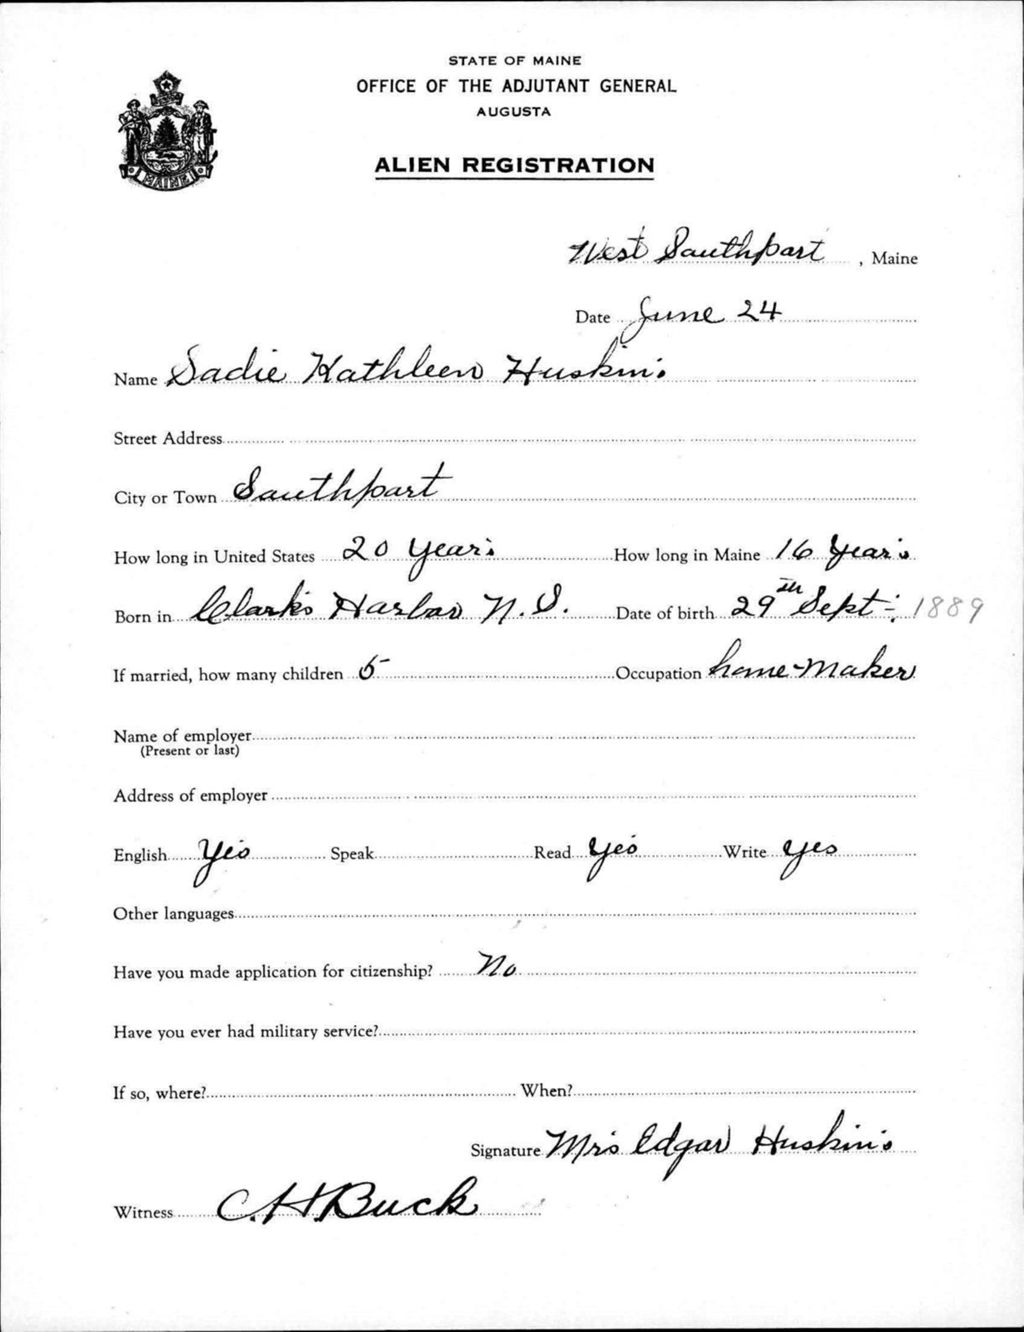 STATE OF MAINE
OFFICE OF THE ADJUTANT GENERAL
AUGUSTA
ALIEN REGISTRATION
MAINE
West Southport, Maine
Date June 24
Name Sadie Kathleen Huskins
Street Address
City or Town Southport
How long in United States 20 years How long in Maine 16 years
Born in Clarks Harbor N. S. Date of birth 29th Sept- 1889
If married, how many children 5 Occupation home-maker
Name of employer
(Present or last)
Address of employer
English Yes Speak Read yes Write yes
Other languages
Have you made application for citizenship? No
Have you ever had military service?
If so, where? When?
Signature Mrs Edgar Huskins
Witness C. H. Buck